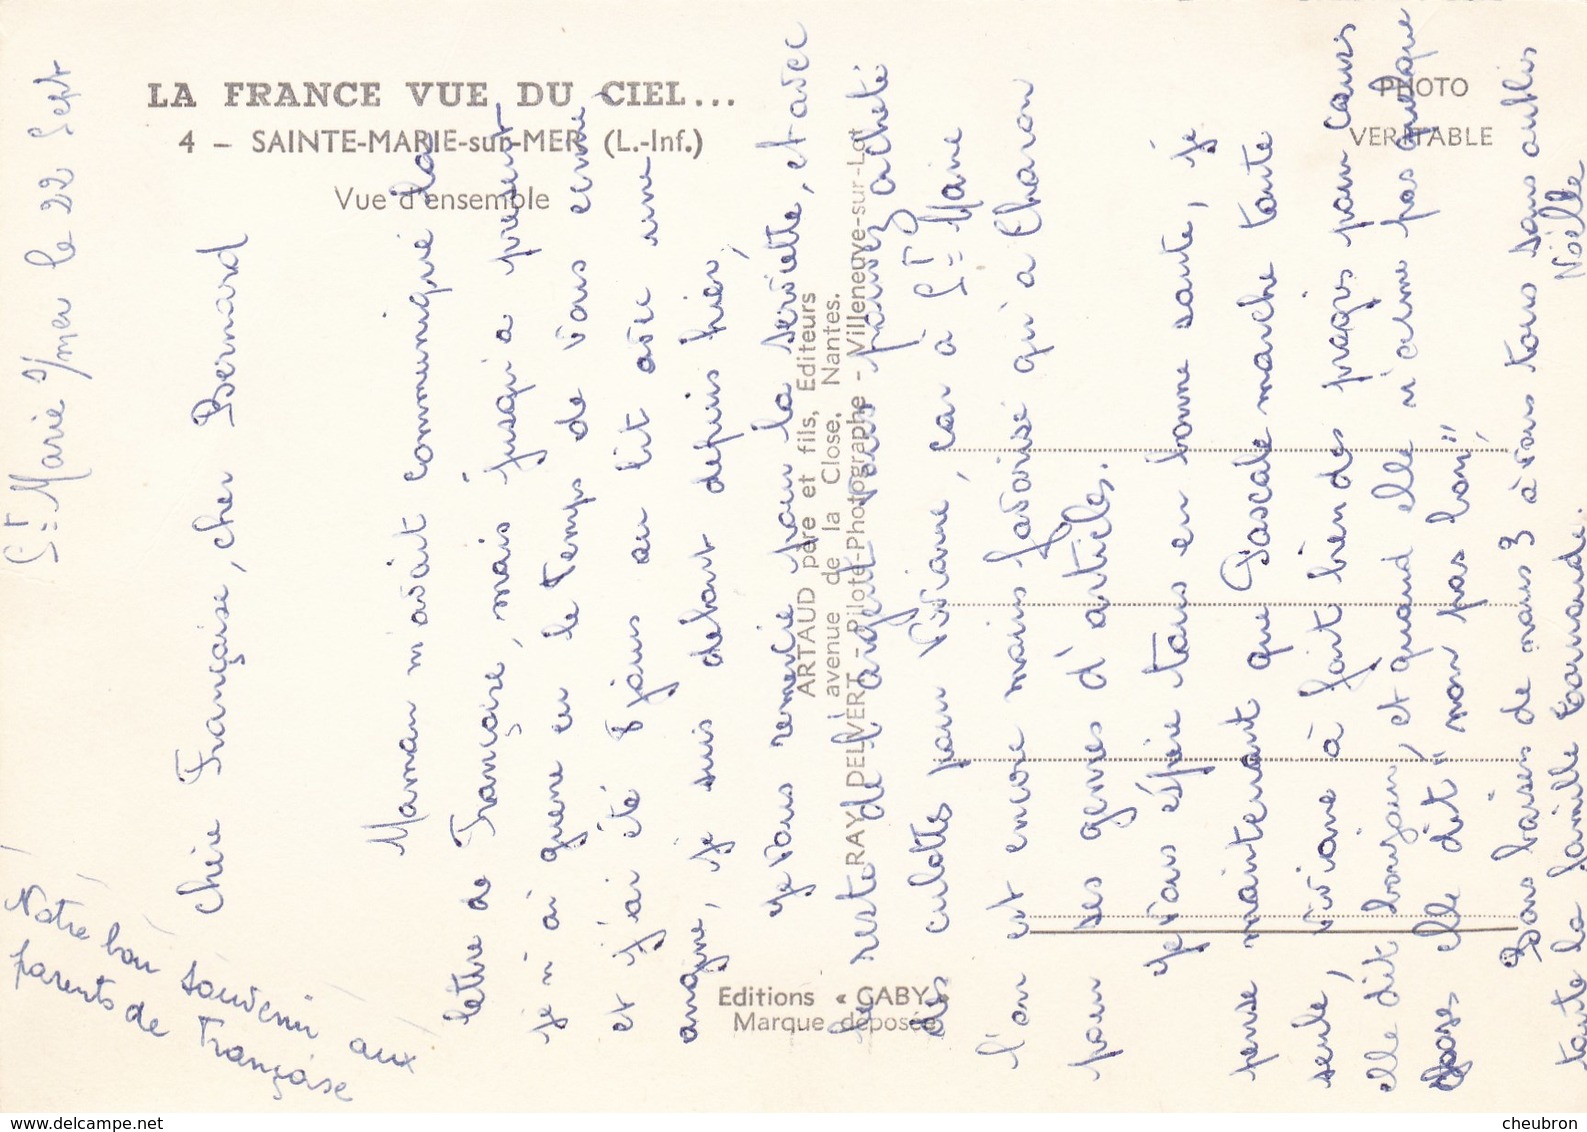 LA FRANCE VUE DU CIEL...
4 – SAINTE-MARIE-sur-MER (L.-Inf.)
Vue d'ensemble
PHOTO
VERITABLE
ARTAUD père et fils, Editeurs
avenue de la Close, Nantes.
RAY DELVERT - Pilote-Photographe - Villeneuve-sur-Lot
Editions « GABY »
Marque déposée
St Marie s/mer le 22 Sept
chère Françoise, cher Bernard
Maman m'avait communiqué la
lettre de Françoise, mais jusqu'a présent
je n'ai guere eu le temps de vous ecrire
et j'ai été 8 jours au lit avec une
angine, je suis debout depuis hier,
je vous remercie pour la serviette, et avec
le reste de l'argent vous pouvez acheté
des culottes pour Viviane, car à St Marie
l'on est encore moins favorisé qu'a Charon
pour ses genres d'articles.
je vous espère tous en bonne santé, je
pense maintenant que Pascale marche toute
seule, Viviane à fait bien des progrès pour causer
elle dit bonjour, et quand elle n'aime pas quelque
chose elle dit "non pas bon"
Bons baisers de nous 3 à vous tous sans oublier
toute la famille tournande.
Noëlle
Notre bon souvenir aux
parents de Françoise
cheubron